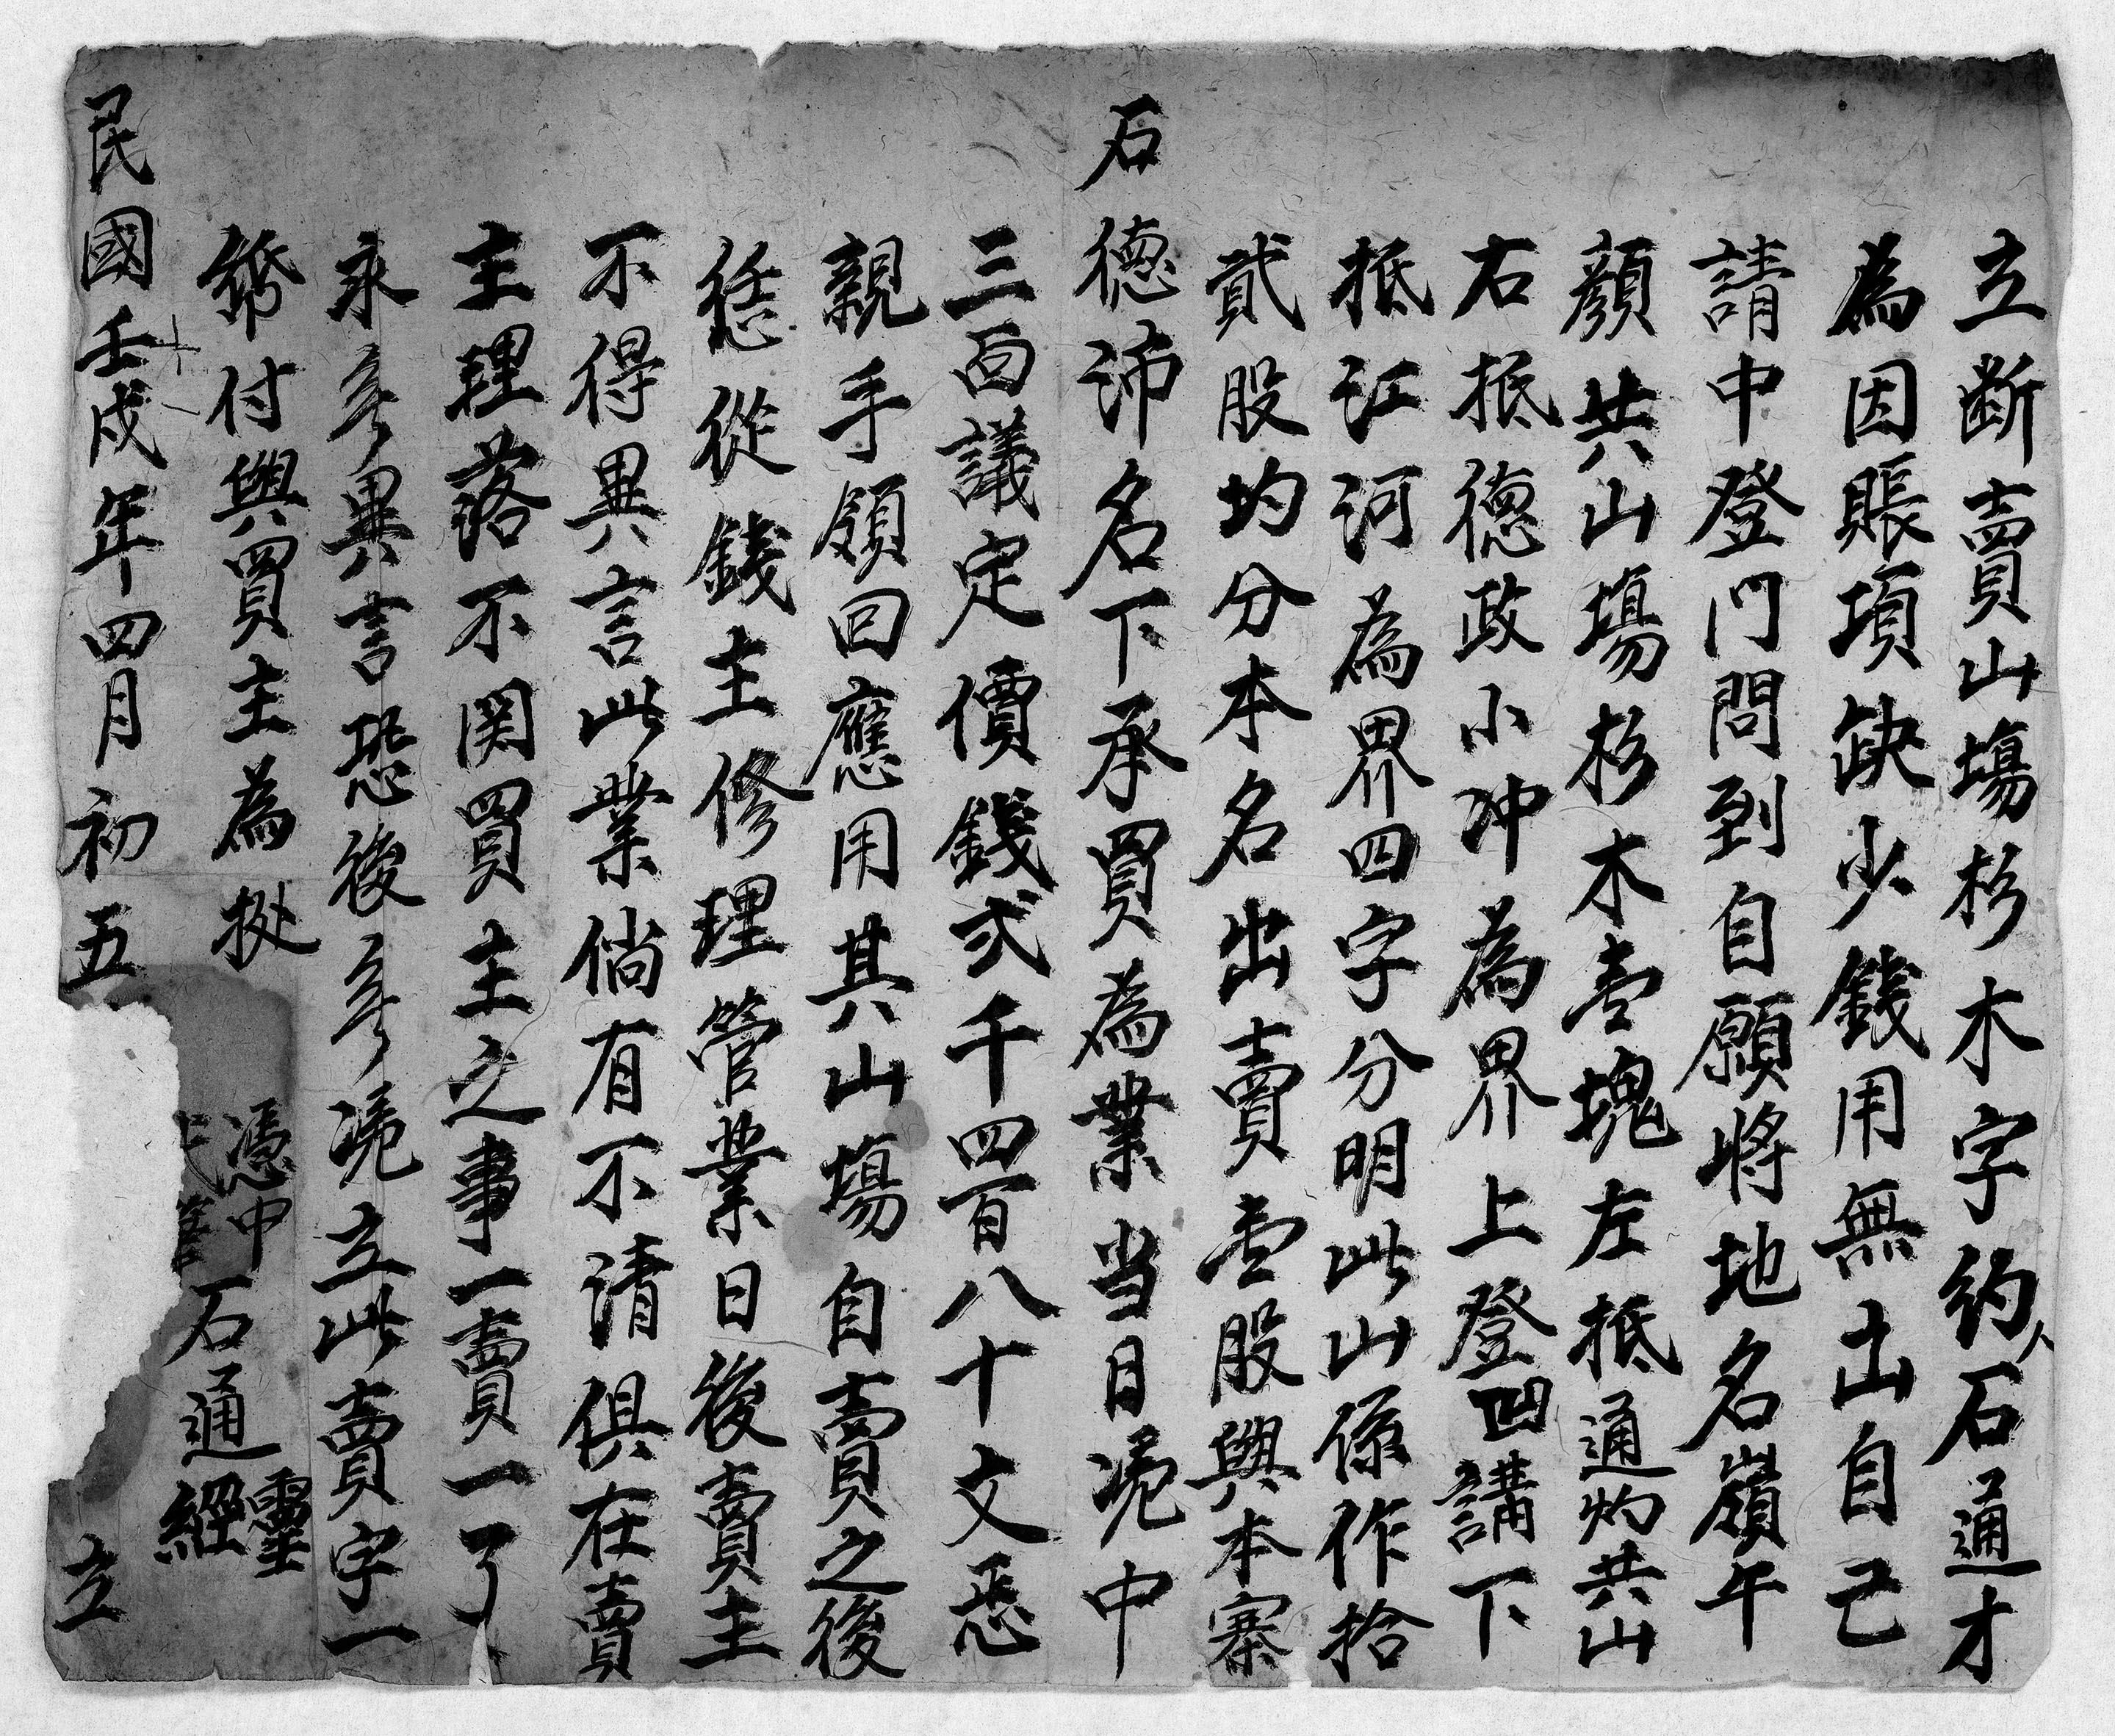 立断賣山塲杉木字約人石通才
為因賬項缺少錢用無出自己
請中登門問到自願將地名嶺午
顔共山塲杉木壹塊左抵通灼共山
右抵德政小冲為界上登凹講下
抵江河為界四字分明此山係作拾
貳股均分本名出賣壹股與本寨
石德沛名下承買為業当日凴中
三面議定價錢弍千四百八十文悉
親手領回應用其山塲自賣之後
恁從錢主修理管業日後賣主
不得異言此業倘有不清俱在賣
主理落不関買主之事一賣一了
永無異言恐後無凴立此賣字一
付與買主為㨿
憑中 石通靈
代筆 石通經
民國壬戌年四月初五 立